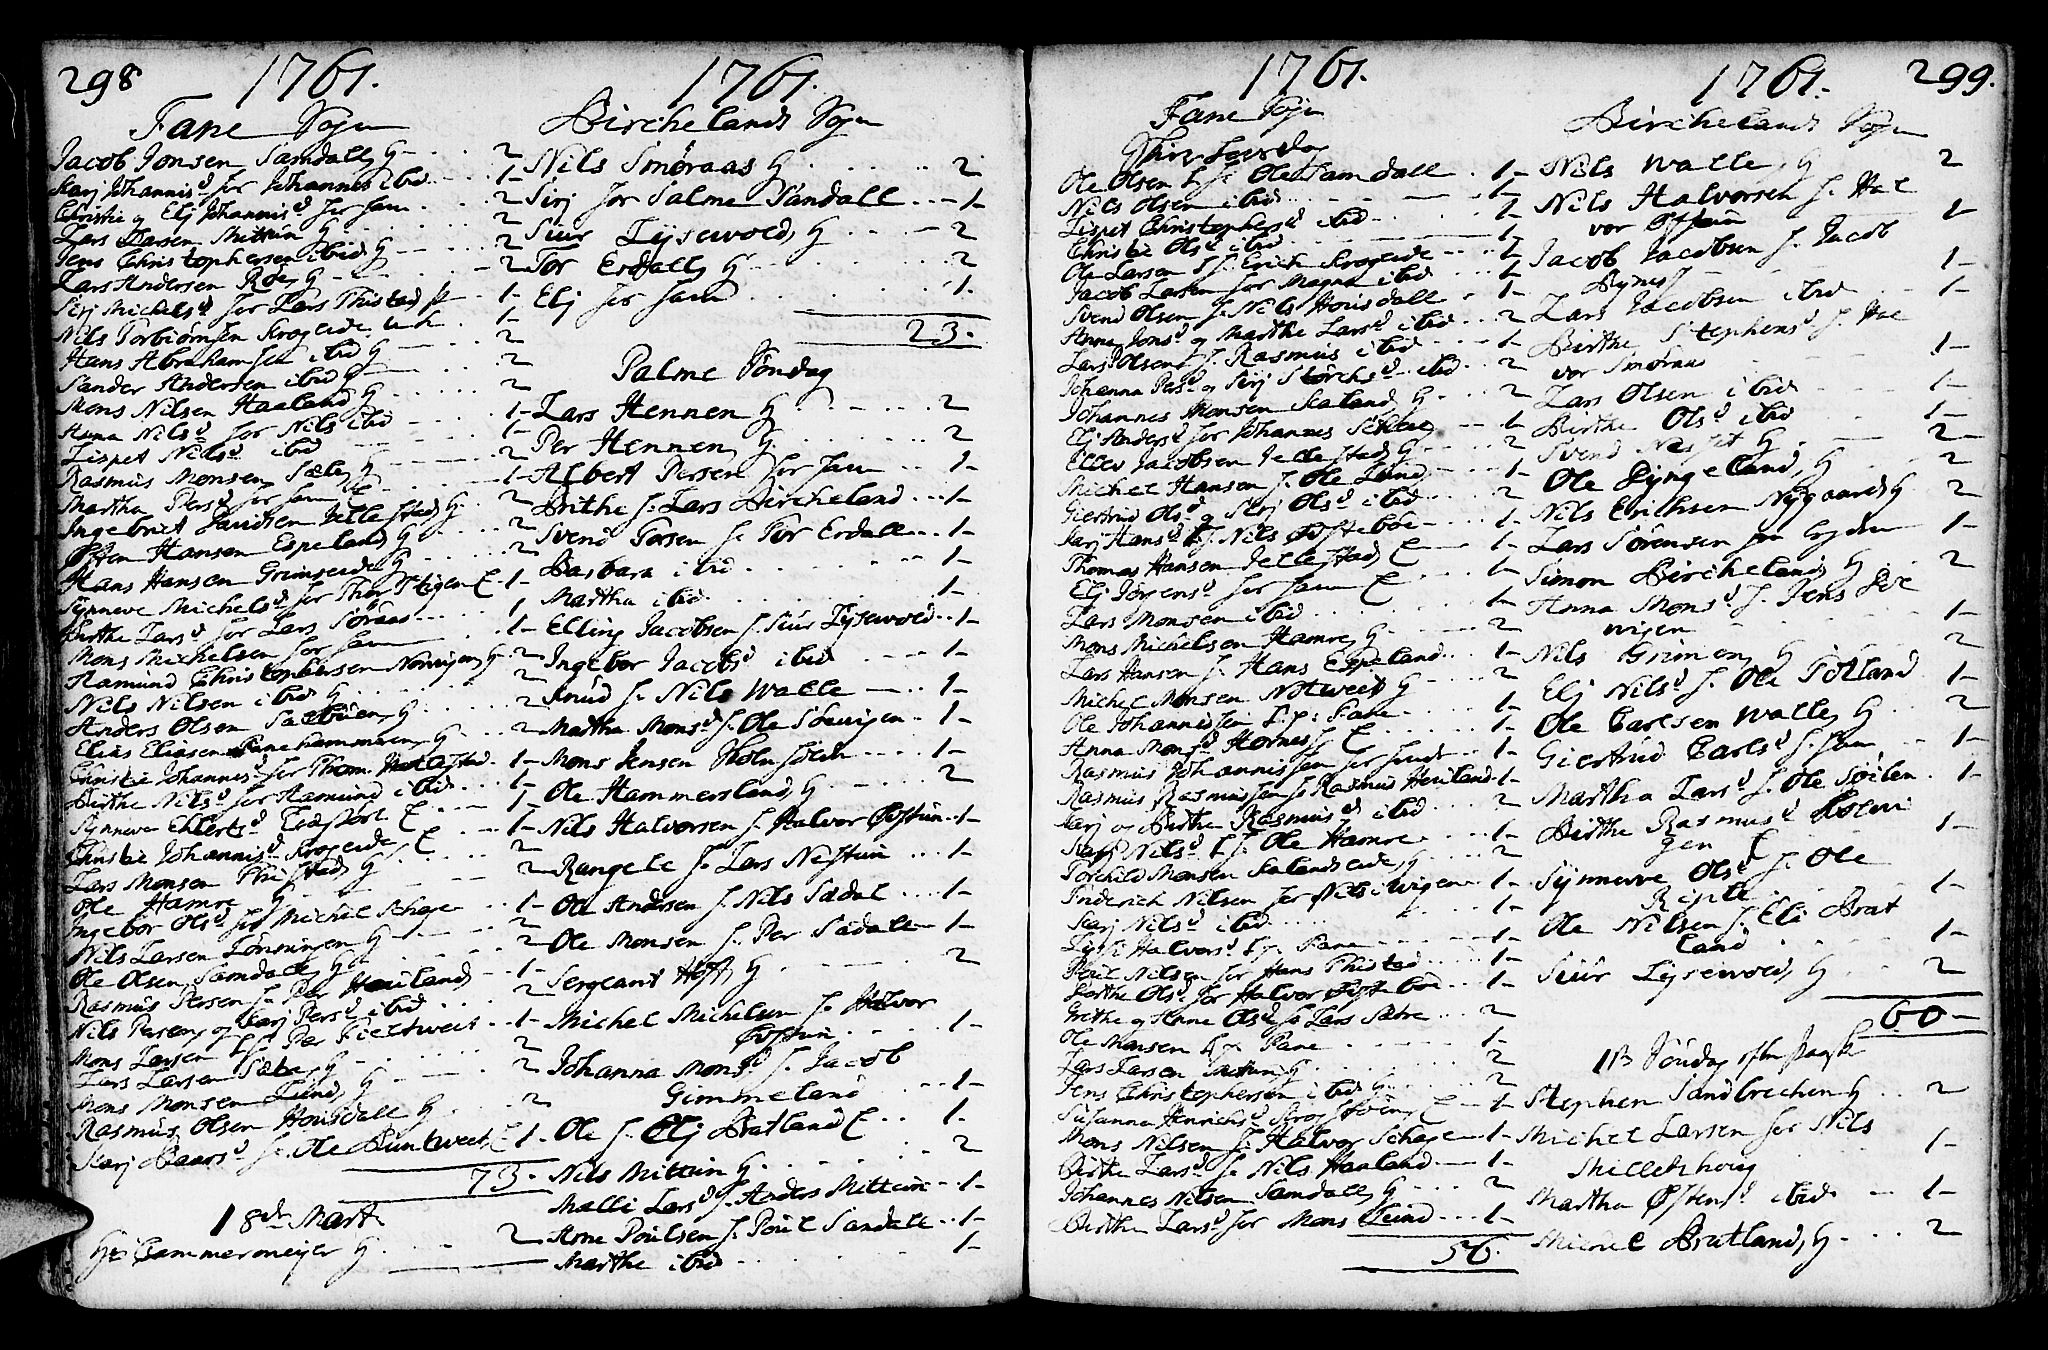 298
1761.
Fane Sogn
Jacob Jonsen Samdall, G - 2
Karj Johannisd for Johannes ibid - 1
Christie og Elj Johannisd for ham - 2
Lars Larsen Mittun G - 2
Jens Christophersen ibid G - 2
Lars Andersen Røe, G - 2
Sirj Michelsd for Lars Thistad - 1
Nils Torbiørnsen Krogeide - 1
Hans Abrahamsen ibid G - 2
Sander Andersen ibid G - 2
Mons Nilsen Haaland, G - 2
Anna Nilsd for Nils ibid - 1
Lispet Nilsd ibid - 1
Rasmus Monsen Sæle, G - 2
Martha Persd for ham - 1
Ingebrict Davidsen Jellestad, G - 2
Østen Hansen Espeland, G - 2
Hans Hansen Grimseide G - 2
Synneve Michelsd for Thor Stigen C - 1
Birthe Larsd for Lars Søraas - 1
Mons Michelsen for ham - 1
Hamund Christophersen Norwigen, G - 2
Nils Nilsen ibid G - 2
Anders Olsen Saltbuen, G - 2
Elias Eliasen Fanehammeren, G - 2
Christie Johannisd for Thom - 1
Birthe Nilsd for Hamund ibid - 1
Synneve Ehlertsd C - 1
Christie Johannisd Krogeide C - 1
Lars Monsen Thistad, G - 2
Ole Hamre G - 2
Ingebor Olsd for Michel Schage - 1
Nils Larsen Lønningen G - 2
Ole Olsen Samdall, G - 2
Rasmus Persen f. Per Hauland - 1
Nils Persen, og Karj Persd ibid - 2
Mons Larsen Per - 1
Lars Larsen Sæle, G - 2
Mons Monsen Lund, G - 2
Rasmus Olsen Housdall G - 2
Karj Baarsd f. Ole Buntweet, C - 1
73.
18de Mart
Hr Cammermeijer G - 2
1761.
Birchelands Sogn
Nils Smøraas G - 2
Sirj for Salme Sandall - 1
Siur Lysewold, G - 2
Tor Erdall, G - 2
Elj for ham - 1
23.
Palme Søndag
Lars Hennen G - 2
Per Hennen, G - 2
Albert Persen for ham - 1
Brithe f. Lars Bircheland - 1
Svend Torsen f. Tor Erdall - 1
Barbara ibid - 1
Martha ibid - 1
Elling Jacobsen f. Siur Lysewold - 1
Ingebor Jacobsd ibid - 1
Knud f. Nils Walle - 1
Martha Monsd f. Ole - 1
Mons Jensen - 1
Ole Hammersland, G - 2
Nils Halvorsen f. Halvor Øvstun - 1
Rangele f. Lars Nestun - 1
Ole Andersen f. Nils Sædal - 1
Ole Monsen f. Per Sædall - 1
Sergeant Hoff, G - 2
Michel Michelsen f. Halvor
Øvstun - 1
Johanna Monsd f. Jacob
Gimmeland - 1
Ole f. Elj Bratland C - 1
Nils Mittun G - 2
Malli Larsd f. Anders Mittun - 1
Arne Poulsen f. Poul Sandall - 1
Marthe ibid - 1
1761.
Fane Sogn
Skiærtorsdag
Ole Olsen f. Ole Samdall - 1
Nils Olsen ibid - 1
Lispet Christophersd ibid - 1
Christie Olsd ibid - 1
Ole Larsen f. Erich Krogeide - 1
Jacob Larsen for Magne ibid - 1
Svend Olsen f. Nils Housdall - 1
Anna Jonsd og Marthe Larsd ibid - 2
Lars Olsen f. Rasmus ibid - 1
Johanna Persd og Sirj Størchsd ibid - 2
Johannes Monsen Kaland, G - 2
Elj Andersd for Johannes - 1
Elles Jacobsen Jellestad, G - 2
Michel Hansen f. Ole Lund - 1
Giertrud Olsd og Karj Olsd ibid - 2
Karj Hansd f. Nils Østebøe - 1
Thomas Hansen Jellestad, C - 1
Elj Jørensd for ham C - 1
Lars Monsen ibid - 1
Mons Michelsen Hamre, G - 2
Lars Hansen f. Hans Espeland - 1
Michel Monsen Notweet, G - 2
Ole Johannessen Fane - 1
Anna Monsd Hornes C - 1
Rasmus Johannissen - 1
Rasmus Rasmussen f. Rasmus Hauland - 1
Karj og Birthe Rasmusd ibid - 2
Karj Nilsd f. Ole Hamre - 1
Torchild Monsen Kalandseide, G - 2
Friderich Nilsen for Nils i Wigen - 1
Karj Nilsd ibid - 1
Halvorsd Fane - 1
Poul Nilsen for Hans Thistad - 1
Marthe Olsd for Halvor Østebøe - 1
Grethe og Anne Olsd f. Lars Sætre - 2
Ole Monsen Fane - 1
Lars Larsen Mittun, G - 2
Jens Christophersen ibid G - 2
Susanna Henrichsd C - 1
Mons Nilsen f. Halvor Schage - 1
Birthe Larsd f. Nils Haaland - 1
Johannes Nilsen Samdall, G - 2
Birthe Larsd for Mons Lund - 1
56.
1761.
299.
Birchelands Sogn
Nils Walle, G - 2
Nils Halvorsen f. Hal
vor Øvstun - 1
Jacob Jacobsen f. Jacob
Bynes - 1
Lars Jacobsen ibid - 1
Birthe Stephensd f. Hal
vor Smøraas - 1
Lars Olsen ibid - 1
Birthe Olsd ibid - 1
Svend Nesset G - 2
Ole Dyngeland, G - 2
Nils Erichsen Nygaard, G - 2
Lars Sørensen - 1
Simon Bircheland, G - 2
Anna Monsd f. Jens
wigen - 1
Nils Grimen, G - 2
Elj Nilsd f. Ole Totland - 1
Ole Carlsen Walle, G - 2
Giertrud Carlsd f. ham - 1
Martha Larsd f. Ole - 1
Birthe Rasmusd
gen C - 1
Synneve Olsd f. Ole
Riple - 1
Ole Nilsen f. Eli Brat
land - 1
Siur Lysewold, G - 2
60 -
1te Søndag efter Paaske
Stephen Sandbrechen G - 2
Michel Larsen for Nils
Milleshoug - 1
Martha Østensd ibid - 1
Michel Bratland, G - 2